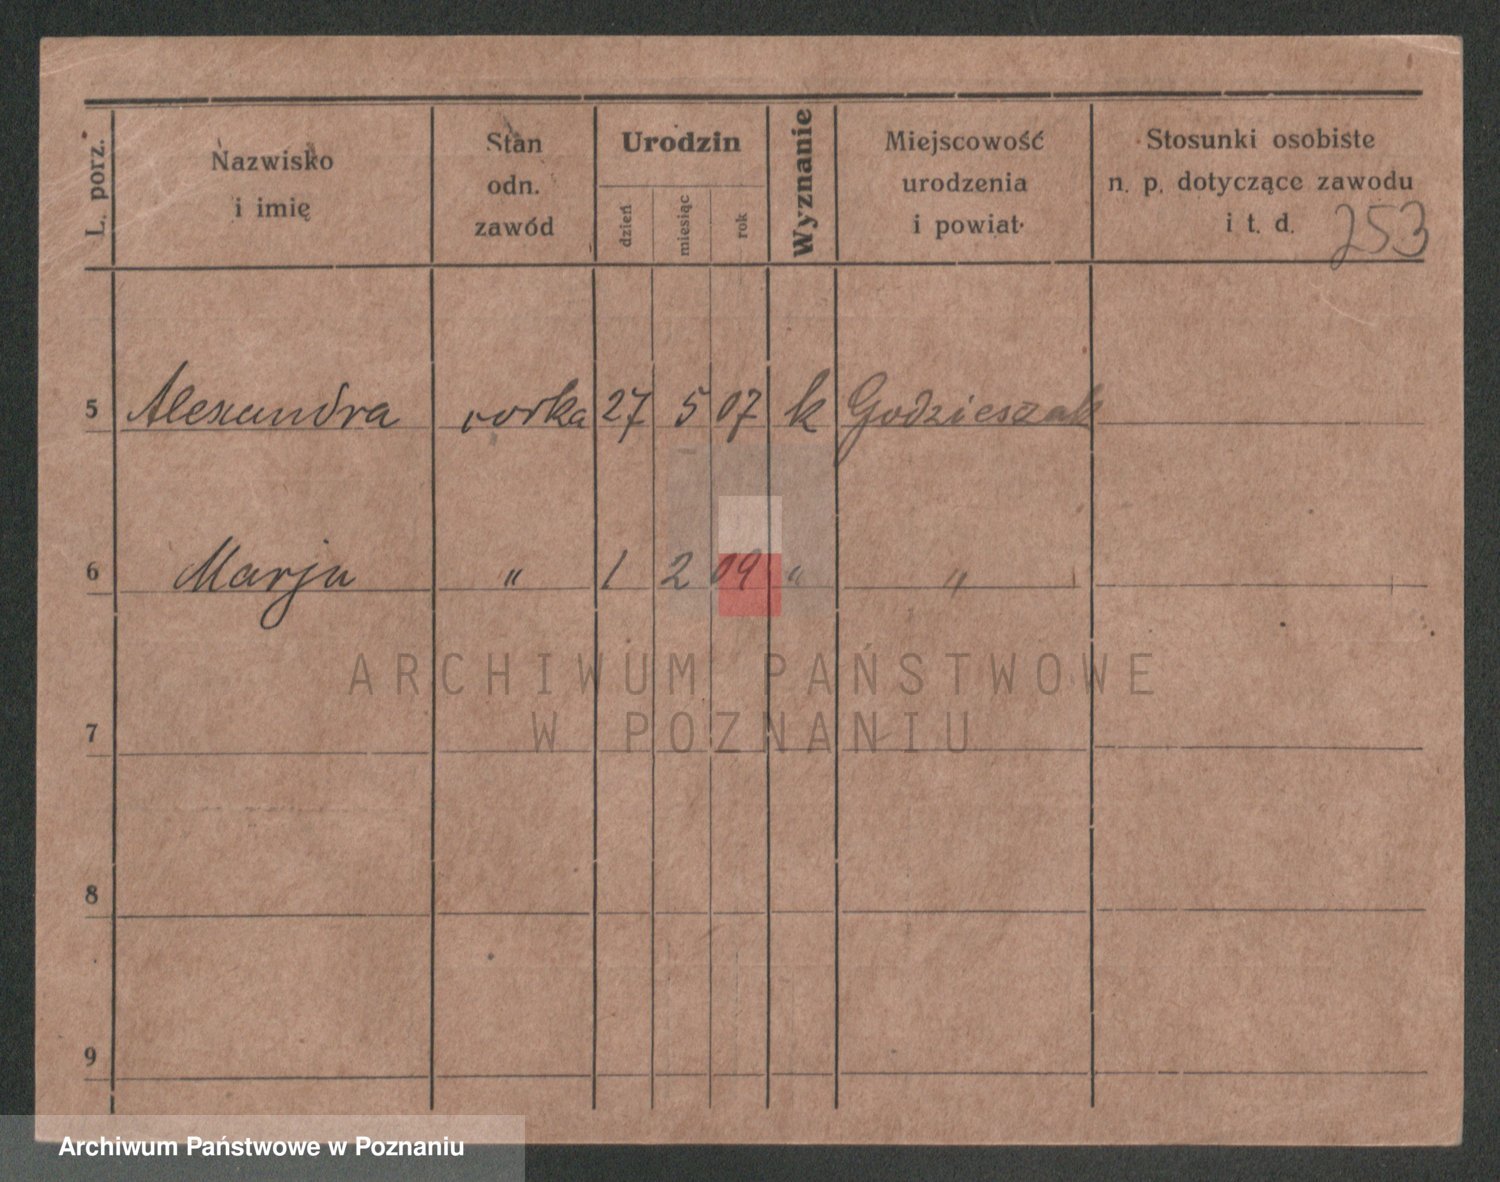 L. porz.
Nazwisko
i imię
Stan
odn.
zawód
Urodzin
dzień
miesiąc
rok
Wyznanie
Miejscowość
urodzenia
i powiat
Stosunki osobiste
n. p. dotyczące zawodu
i t. d.
253
5 Alexandra corka 27 5 07 k Godzieszak
6 Marja " 1 2 09 " "
7
8
9
ARCHIWUM PAŃSTWOWE
W POZNANIU
Archiwum Państwowe w Poznaniu